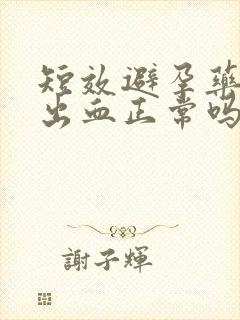 短效避孕藥
出血正常嗎
謝子輝